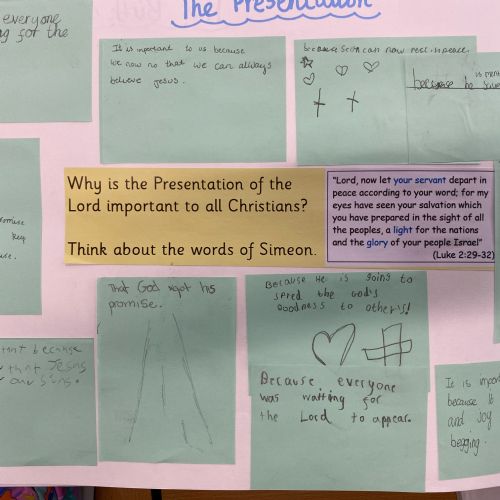 The Presentation
everyone
for the
It is important to us because
we now no that we can always
believe Jesus.
because Se can now rest in peace.
because he
Why is the Presentation of the
Lord important to all Christians?
Think about the words of Simeon.
"Lord, now let your servant depart in
peace according to your word; for my
eyes have seen your salvation which
you have prepared in the sight of all
the peoples, a light for the nations
and the glory of your people Israel"
(Luke 2:29-32)
romise
keep
use.
That God kept his
promise.
Because He is going to
spred the God's
Goodness to other's!
tant because
that Jesus
our sins.
Because everyone
was waitting for
the Lord to appear.
It is impor
because it
and Joy
begging.